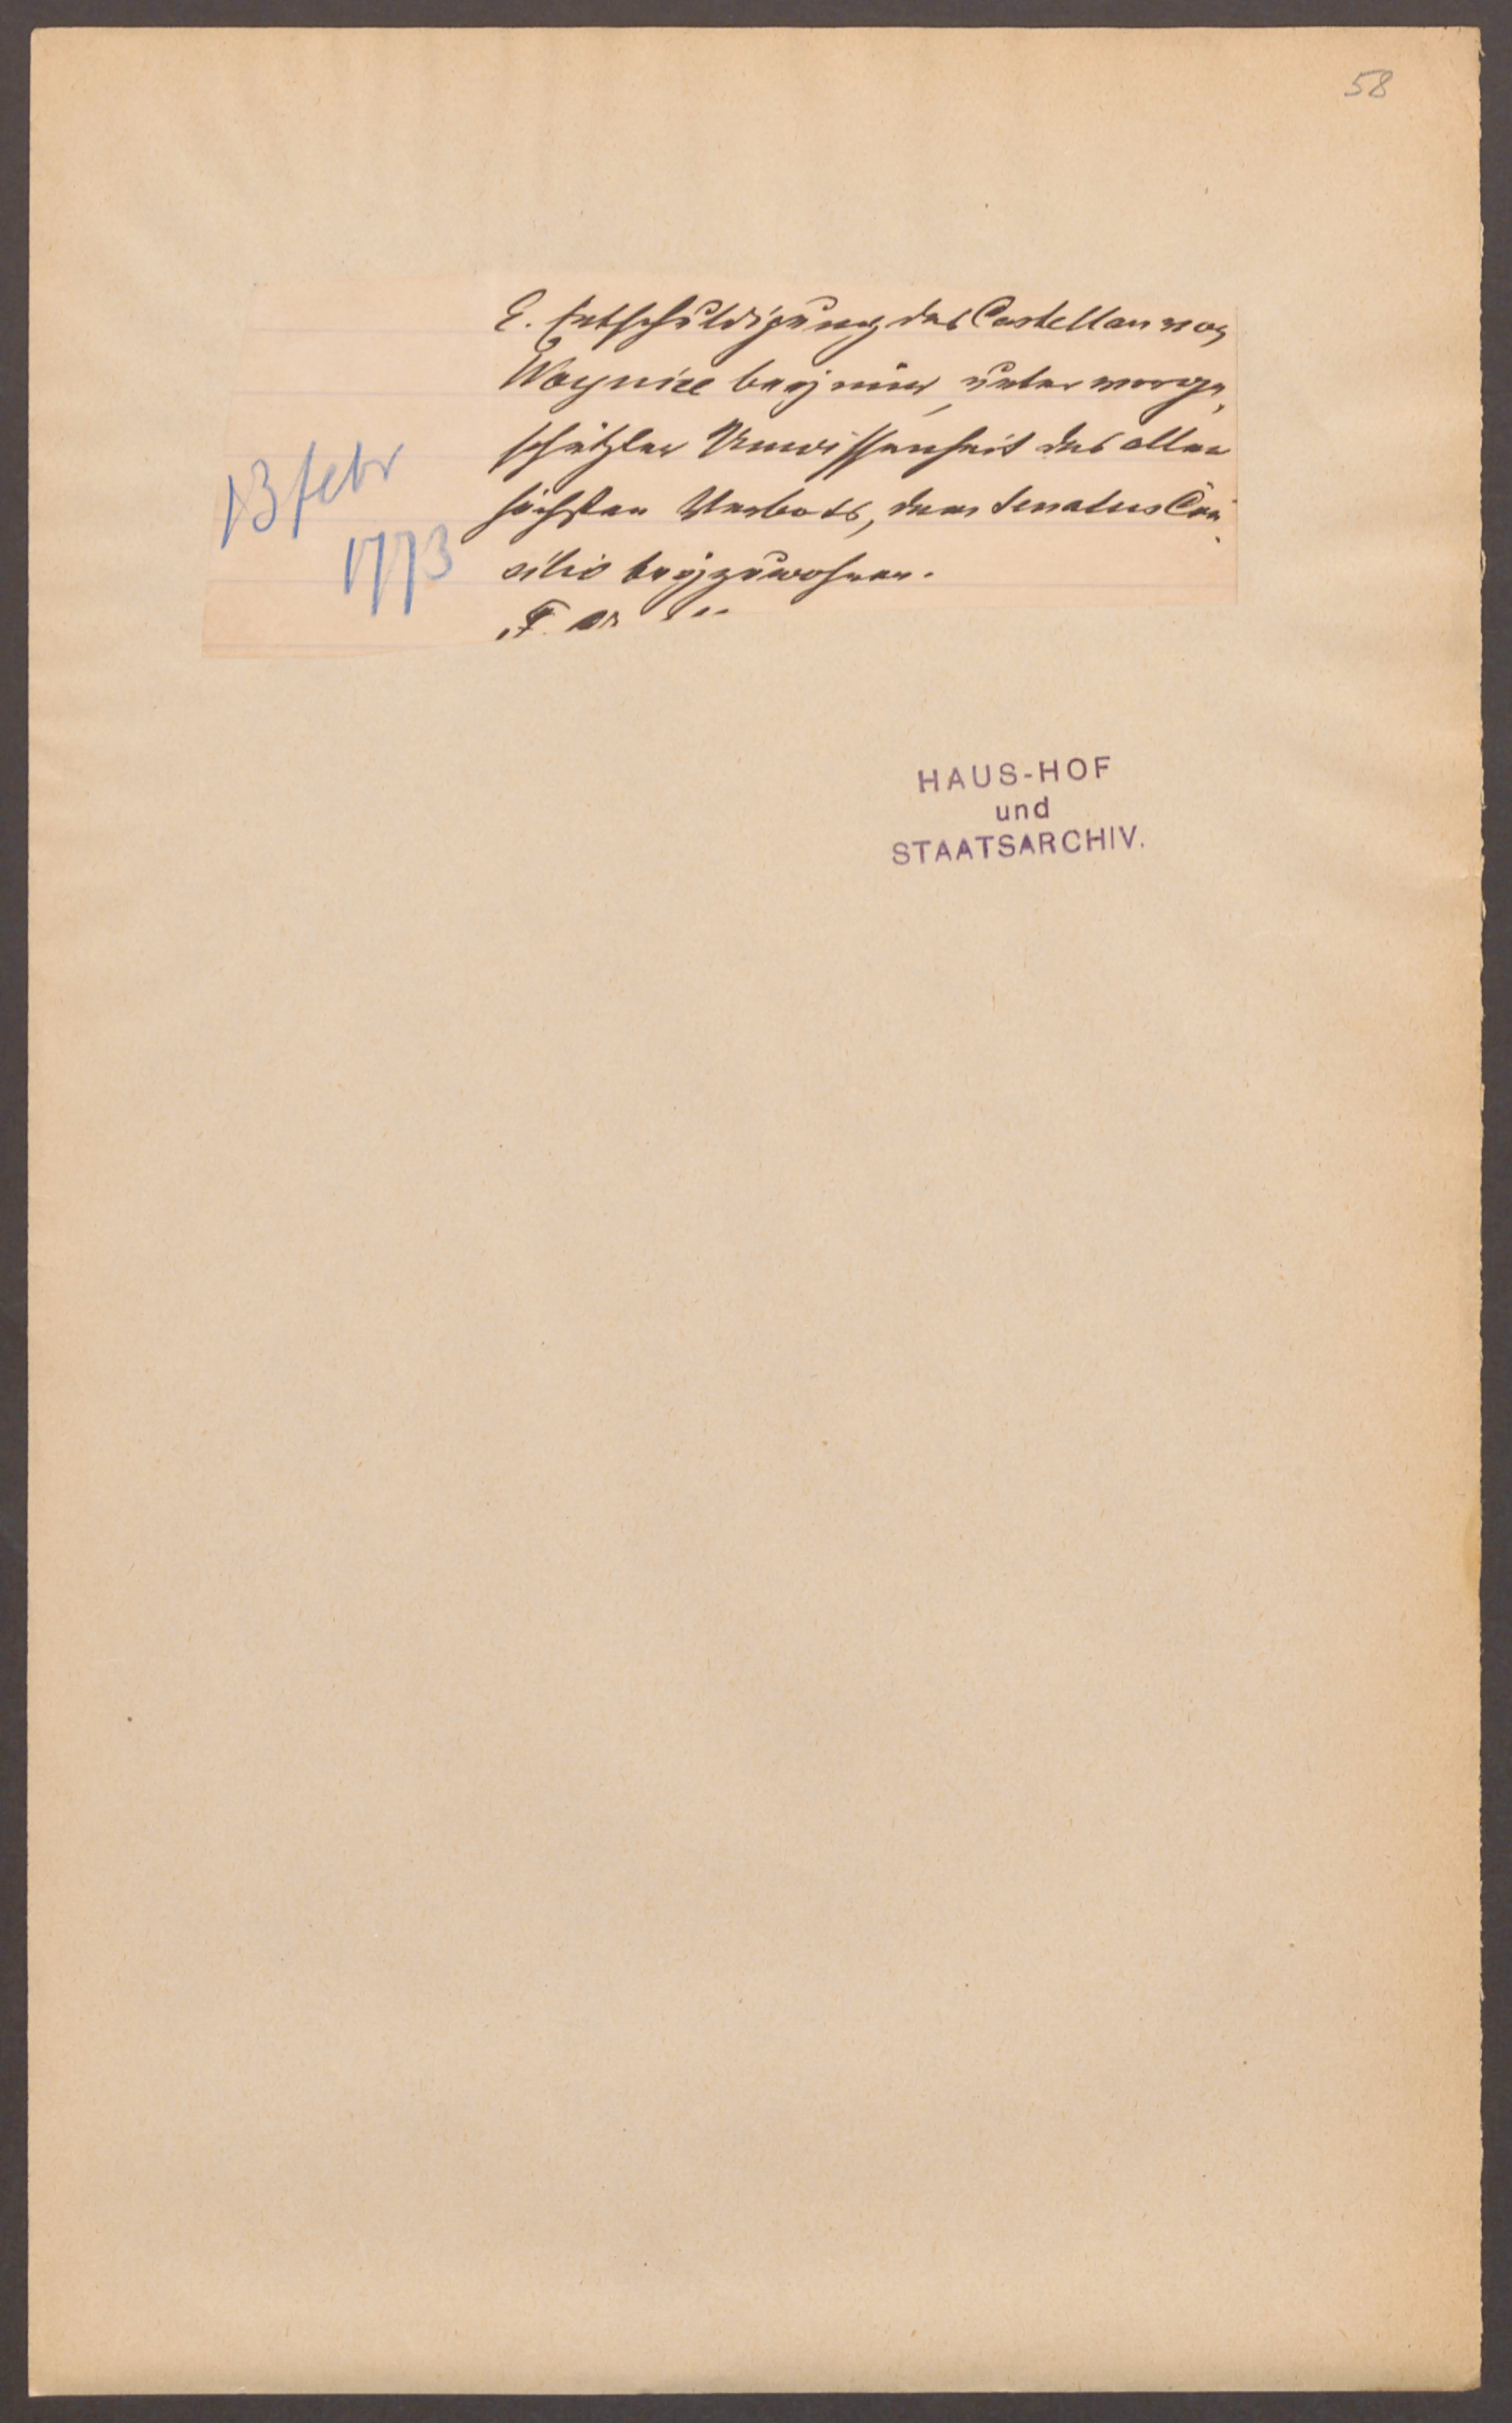 58
E. Entschuldigung des Castellan von
Woynicz bey mir, unter vorge-
schützter Unwissenheit des aller
höchsten Verbots, dem Senatus Con-
silio beyzuwohnen.
13 febr
1773
HAUS-HOF
und
STAATSARCHIV.